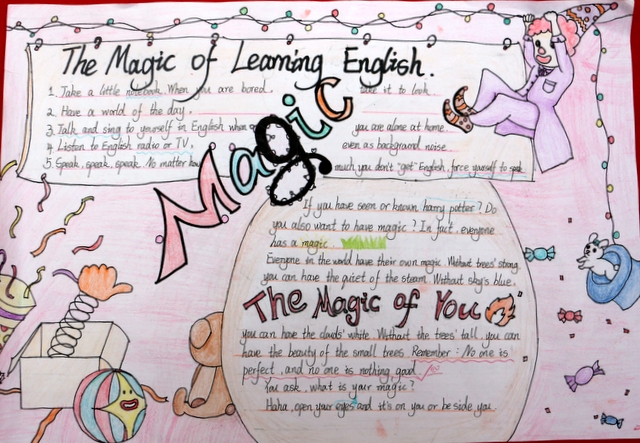 The Magic of Learning English.
1. Take a little notebook. When you are bored, take it to look
2. Have a world of the day.
3. Talk and sing to yourself in English when you are alone at home
4. Listen to English radio or TV, even as background noise
5. Speak, speak, speak. No matter how much you don't "get" English, force yourself to speak
Magic
If you have seen or known harry potter? Do
you also want to have magic? In fact, everyone
has a magic.
Everyone in the world have their own magic. Without trees' strong,
you can have the quiet of the steam. Without sky's blue,
The Magic of You
you can have the clouds' white. Without the trees' tall, you can
have the beauty of the small trees. Remember: No one is
perfect, and no one is nothing good
You ask, what is your magic?
Haha, open your eyes and it's on you or beside you